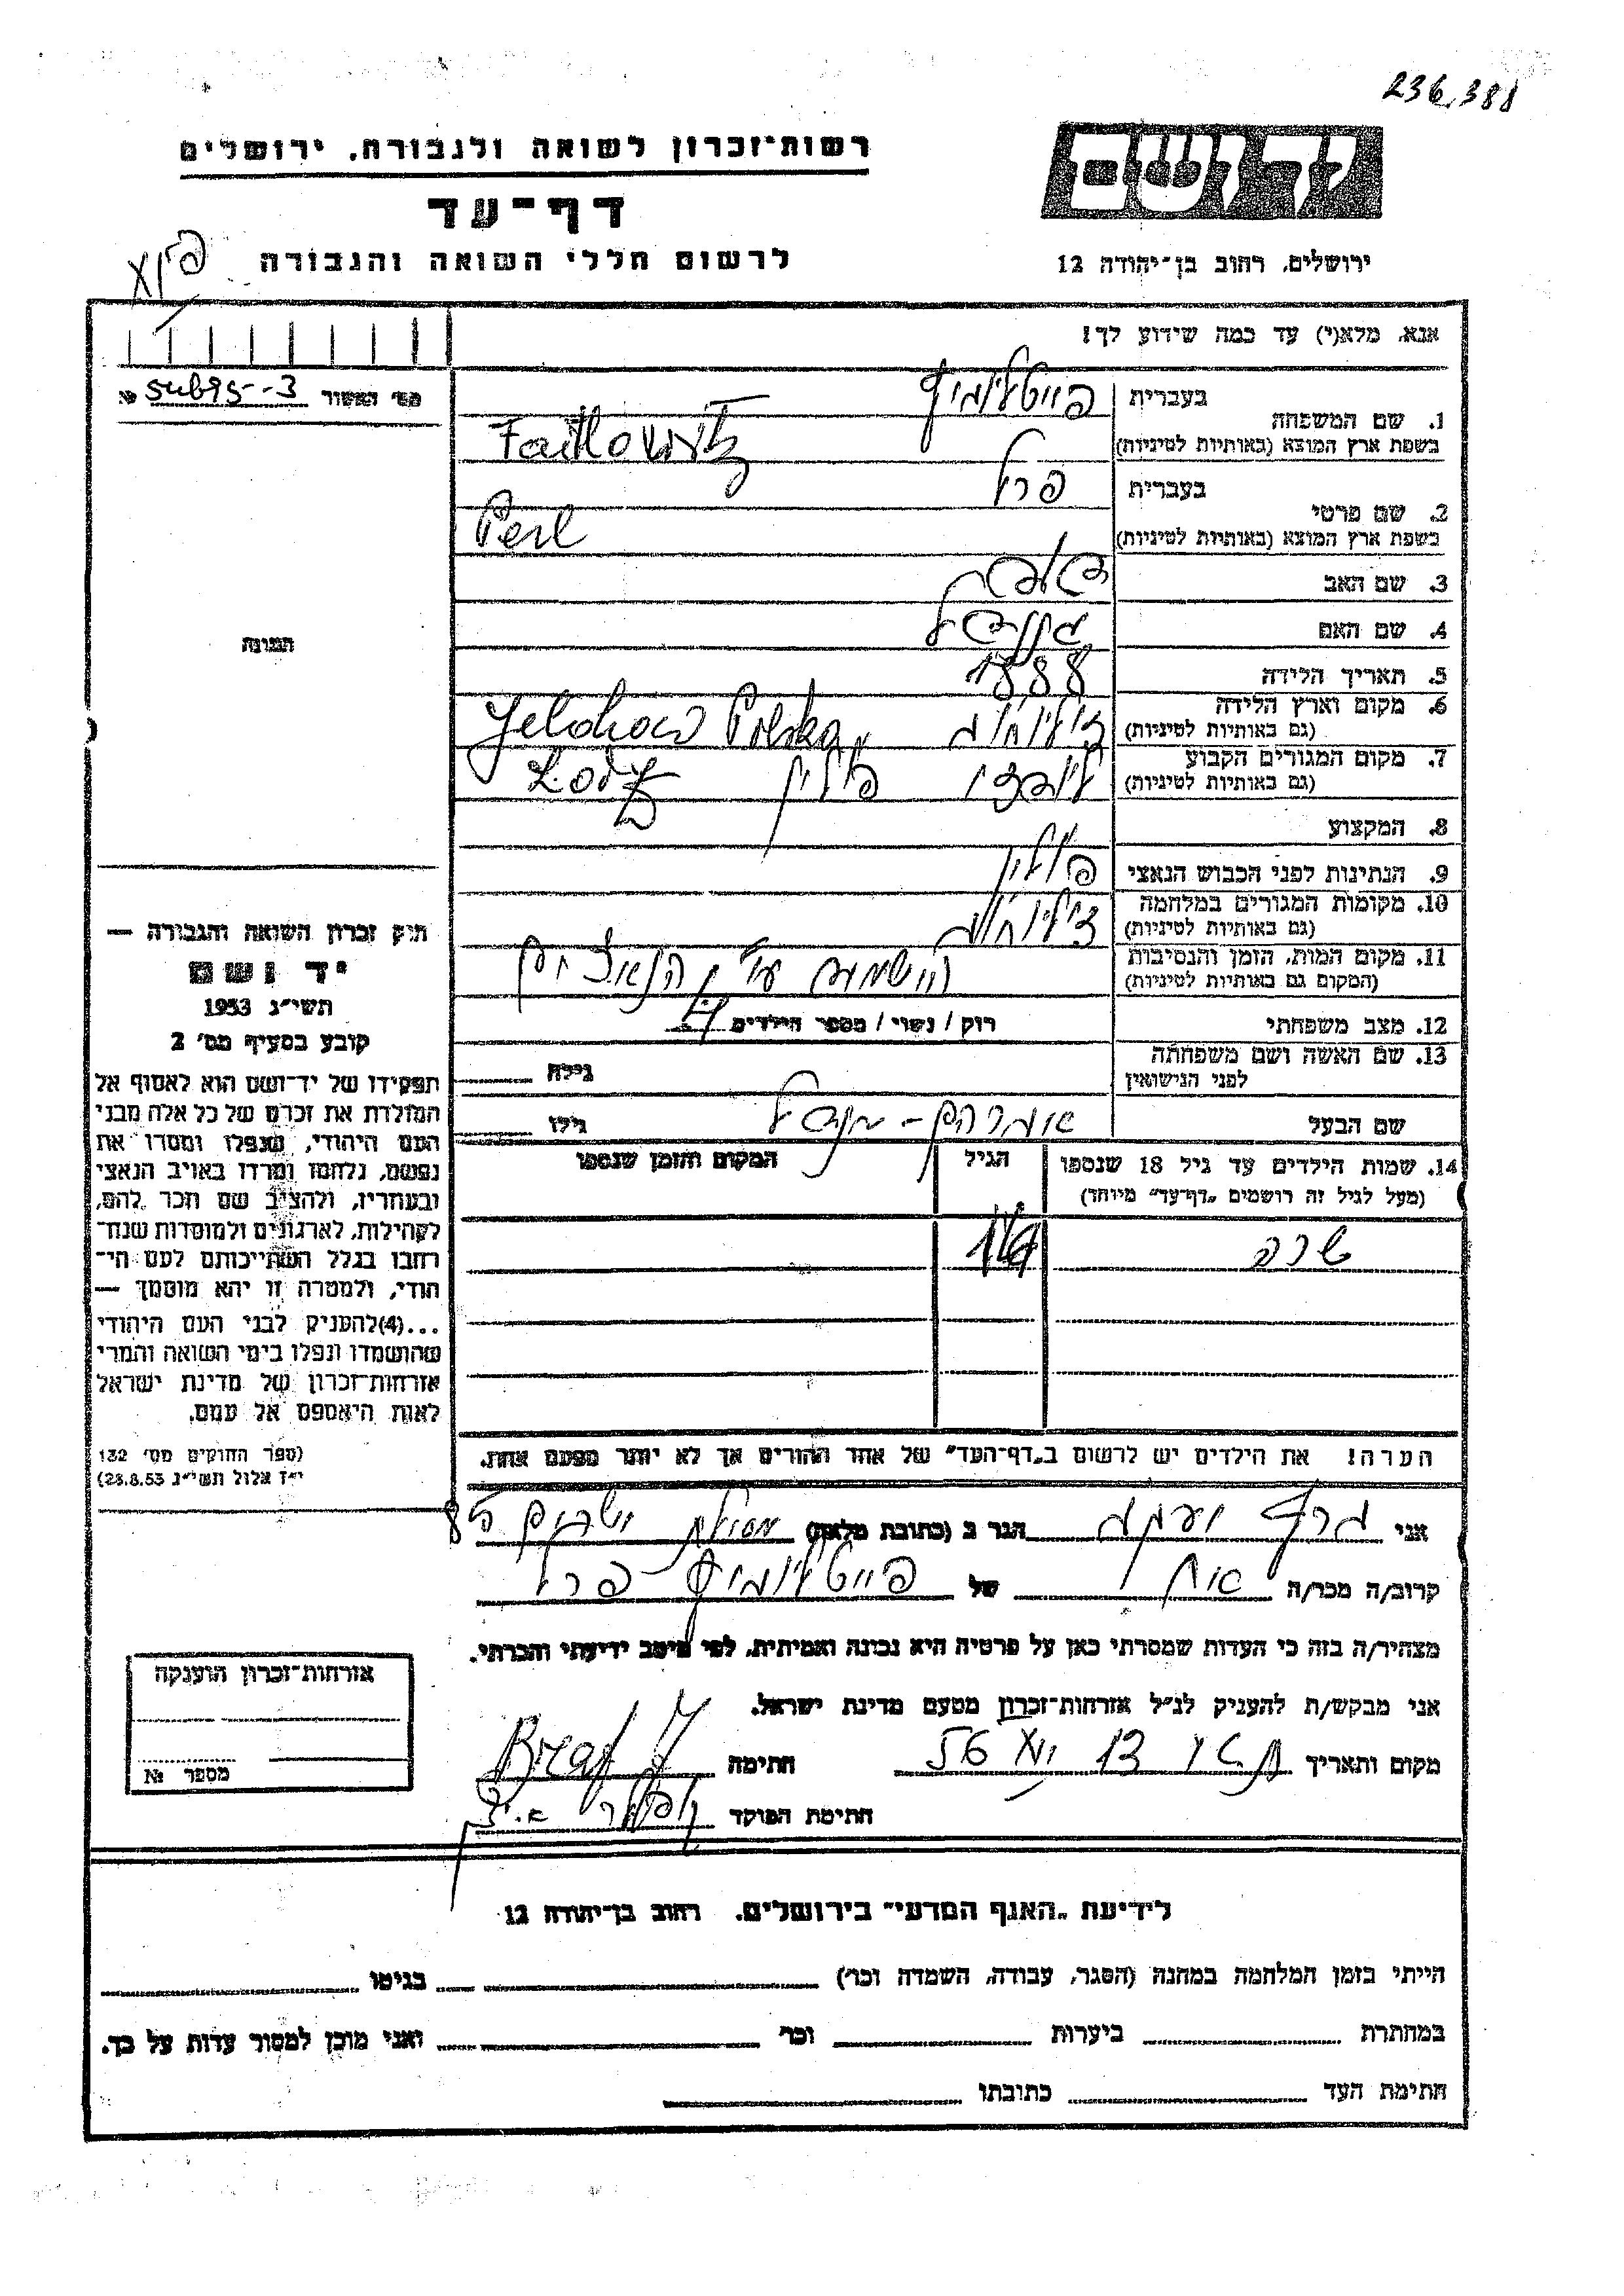 236,388
רשות־זכרון לשואה ולגבורה, ירושלים
דף־עד
לרשום חללי השואה והגבורה
ידושם
ירושלים, רחוב בן־יהודה 12
אנא, מלא(י) עד כמה שידוע לך!
מס' האשור
1. שם המשפחה
בעברית פייטלוביץ
בשפת ארץ המוצא (באותיות לטיניות) Faitlovitz
2. שם פרטי
בעברית פרל
בשפת ארץ המוצא (באותיות לטיניות) Perl
3. שם האב
4. שם האם
5. תאריך הלידה 1888
6. מקום וארץ הלידה
(גם באותיות לטיניות) Jelchow Polska
7. מקום המגורים הקבוע
(גם באותיות לטיניות) פולין Lodz
8. המקצוע
9. הנתינות לפני הכבוש הנאצי פולין
10. מקומות המגורים במלחמה
(גם באותיות לטיניות)
11. מקום המות, הזמן והנסיבות
(המקום גם באותיות לטיניות) הושמדו ע"י הנאצים
12. מצב משפחתי רוק / נשוי / מספר הילדים
13. שם האשה ושם משפחתה
לפני הנישואין גילה
שם הבעל אברהם־ גילו
14. שמות הילדים עד גיל 18 שנספו הגיל המקום והזמן שנספו
(מעל לגיל זה רושמים „דף־עד" מיוחד)
שרה
הערה! את הילדים יש לרשום ב„דף־העד" של אחד ההורים אך לא יותר מפעם אחת.
תמונה
חוק זכרון השואה והגבורה —
יד ושם
תשי"ג 1953
קובע בסעיף מס' 2
תפקידו של יד־ושם הוא לאסוף אל
המולדת את זכרם של כל אלה מבני
העם היהודי, שנפלו ומסרו את
נפשם, נלחמו ומרדו באויב הנאצי
ובעוזריו, ולהציב שם וזכר להם,
לקהילות, לארגונים ולמוסדות שנח־
רחבו בגלל השתייכותם לעם הי־
הודי, ולמטרה זו יהא מוסמך —
...(4)להעניק לבני העם היהודי
שהושמדו ונפלו בימי השואה והמרי
אזרחות־זכרון של מדינת ישראל
לאות היאספם אל עמם.
(ספר החוקים מס' 132
י"ז אלול תשי"ג 28.8.53)
אני ברף הגר ב (כתובת מלאה)
קרוב/ה מכר/ה אח של פייטלוביץ פרל
מצהיר/ה בזה כי העדות שמסרתי כאן על פרטיה היא נכונה ואמיתית, לפי מיטב ידיעתי והכרתי.
אני מבקש/ת להעניק לנ"ל אזרחות־זכרון מטעם מדינת ישראל.
מקום ותאריך 13 56 חתימה Braf
חתימת הפוקד
אזרחות־זכרון הוענקה
מספר №
לידיעת „האגף המדעי" בירושלים, רחוב בן־יהודה 12
הייתי בזמן המלחמה במחנה (הסגר, עבודה, השמדה וכו') בגיטו
במחתרת ביערות וכו' ואני מוכן למסור עדות על כך.
חתימת העד כתובתו